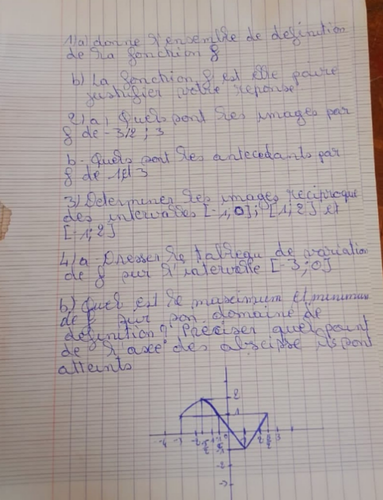 1) a) donne l'ensemble de definition
de la fonction f
b) La fonction f est elle paire
justifier votre reponse
2) a) Quels sont les images par
f de -3; 2; 3
b- Quels sont les antecedants par
f de 1 et 3
3) Determiner les images reciproque
des intervalles [-1,0]; [1,2] et
[-1;2]
4) a Dresser le tableau de variation
de f sur l'intervalle [-3;0]
b) Quel est le maximum et minimum
de f sur son domaine de
definition? Preciser quel point
de l'axe des abscisse ils sont
atteints
2
1
-4 -3
-2
-3